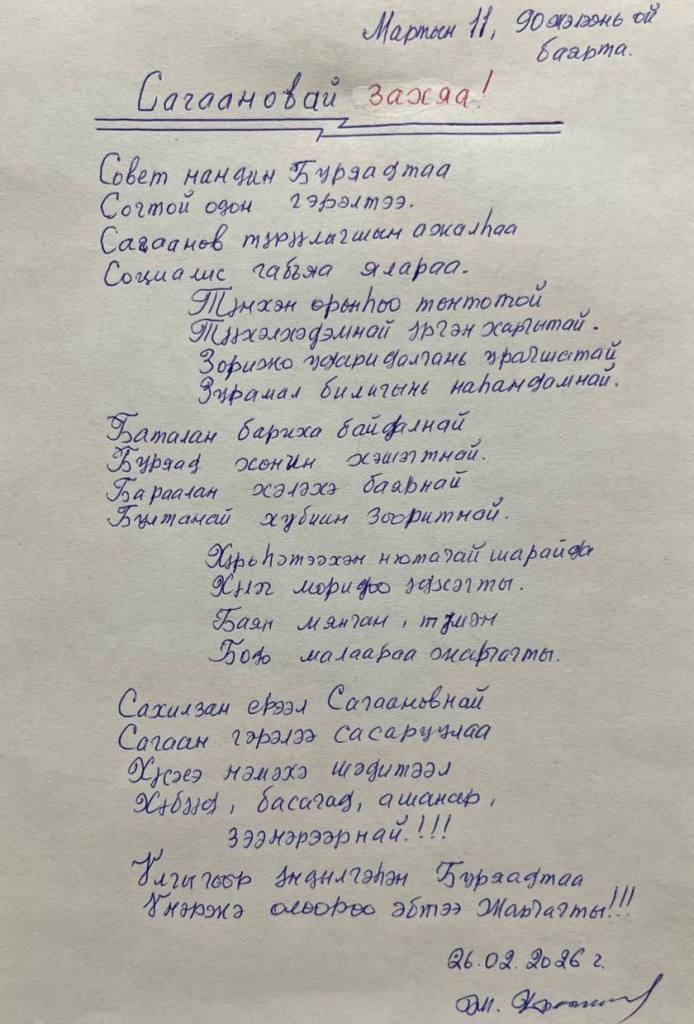 Мартын 11, 90 жэлэнь ой
баярта.
Сагаановай захяа!
Совет нандин Бүряадтаа
Согтой одон гэрэлтээ.
Сагаанов түрүүлэгшын ажалһаа
Социалис габъяа ялараа.
Түнхэн орынһоо тонтотой
Түүхэлхэдэмнай үргэн харгытай.
Зорижо ударидалгань урагшатай
Зурамал билигынь наһандамнай.
Баталан бариха байдалнай
Буряад хонин хэшэгтнай.
Бараалан хэлэхэ баярнай
Бултанай хубиин зооритнай.
Хүрьһэтээхэн нютагай шарайда
Хүлэг моридоо үдхэгты.
Баян мянган, түмэн
Бодо малаараа жаргагты.
Сахилзан ерээл Сагаановнай
Сагаан гэрэлээ сасаруулаа
Хүсэ нэмэхэ шэдитээл
Хүбүүд, басагад, ашанар,
зээнэрээрнай.!!!
Үлгыгөөр үндылгэһэн Буряадтаа
Үнэржэ олоороо эбтээ Жаргагты!!!
26.02.2026 г.